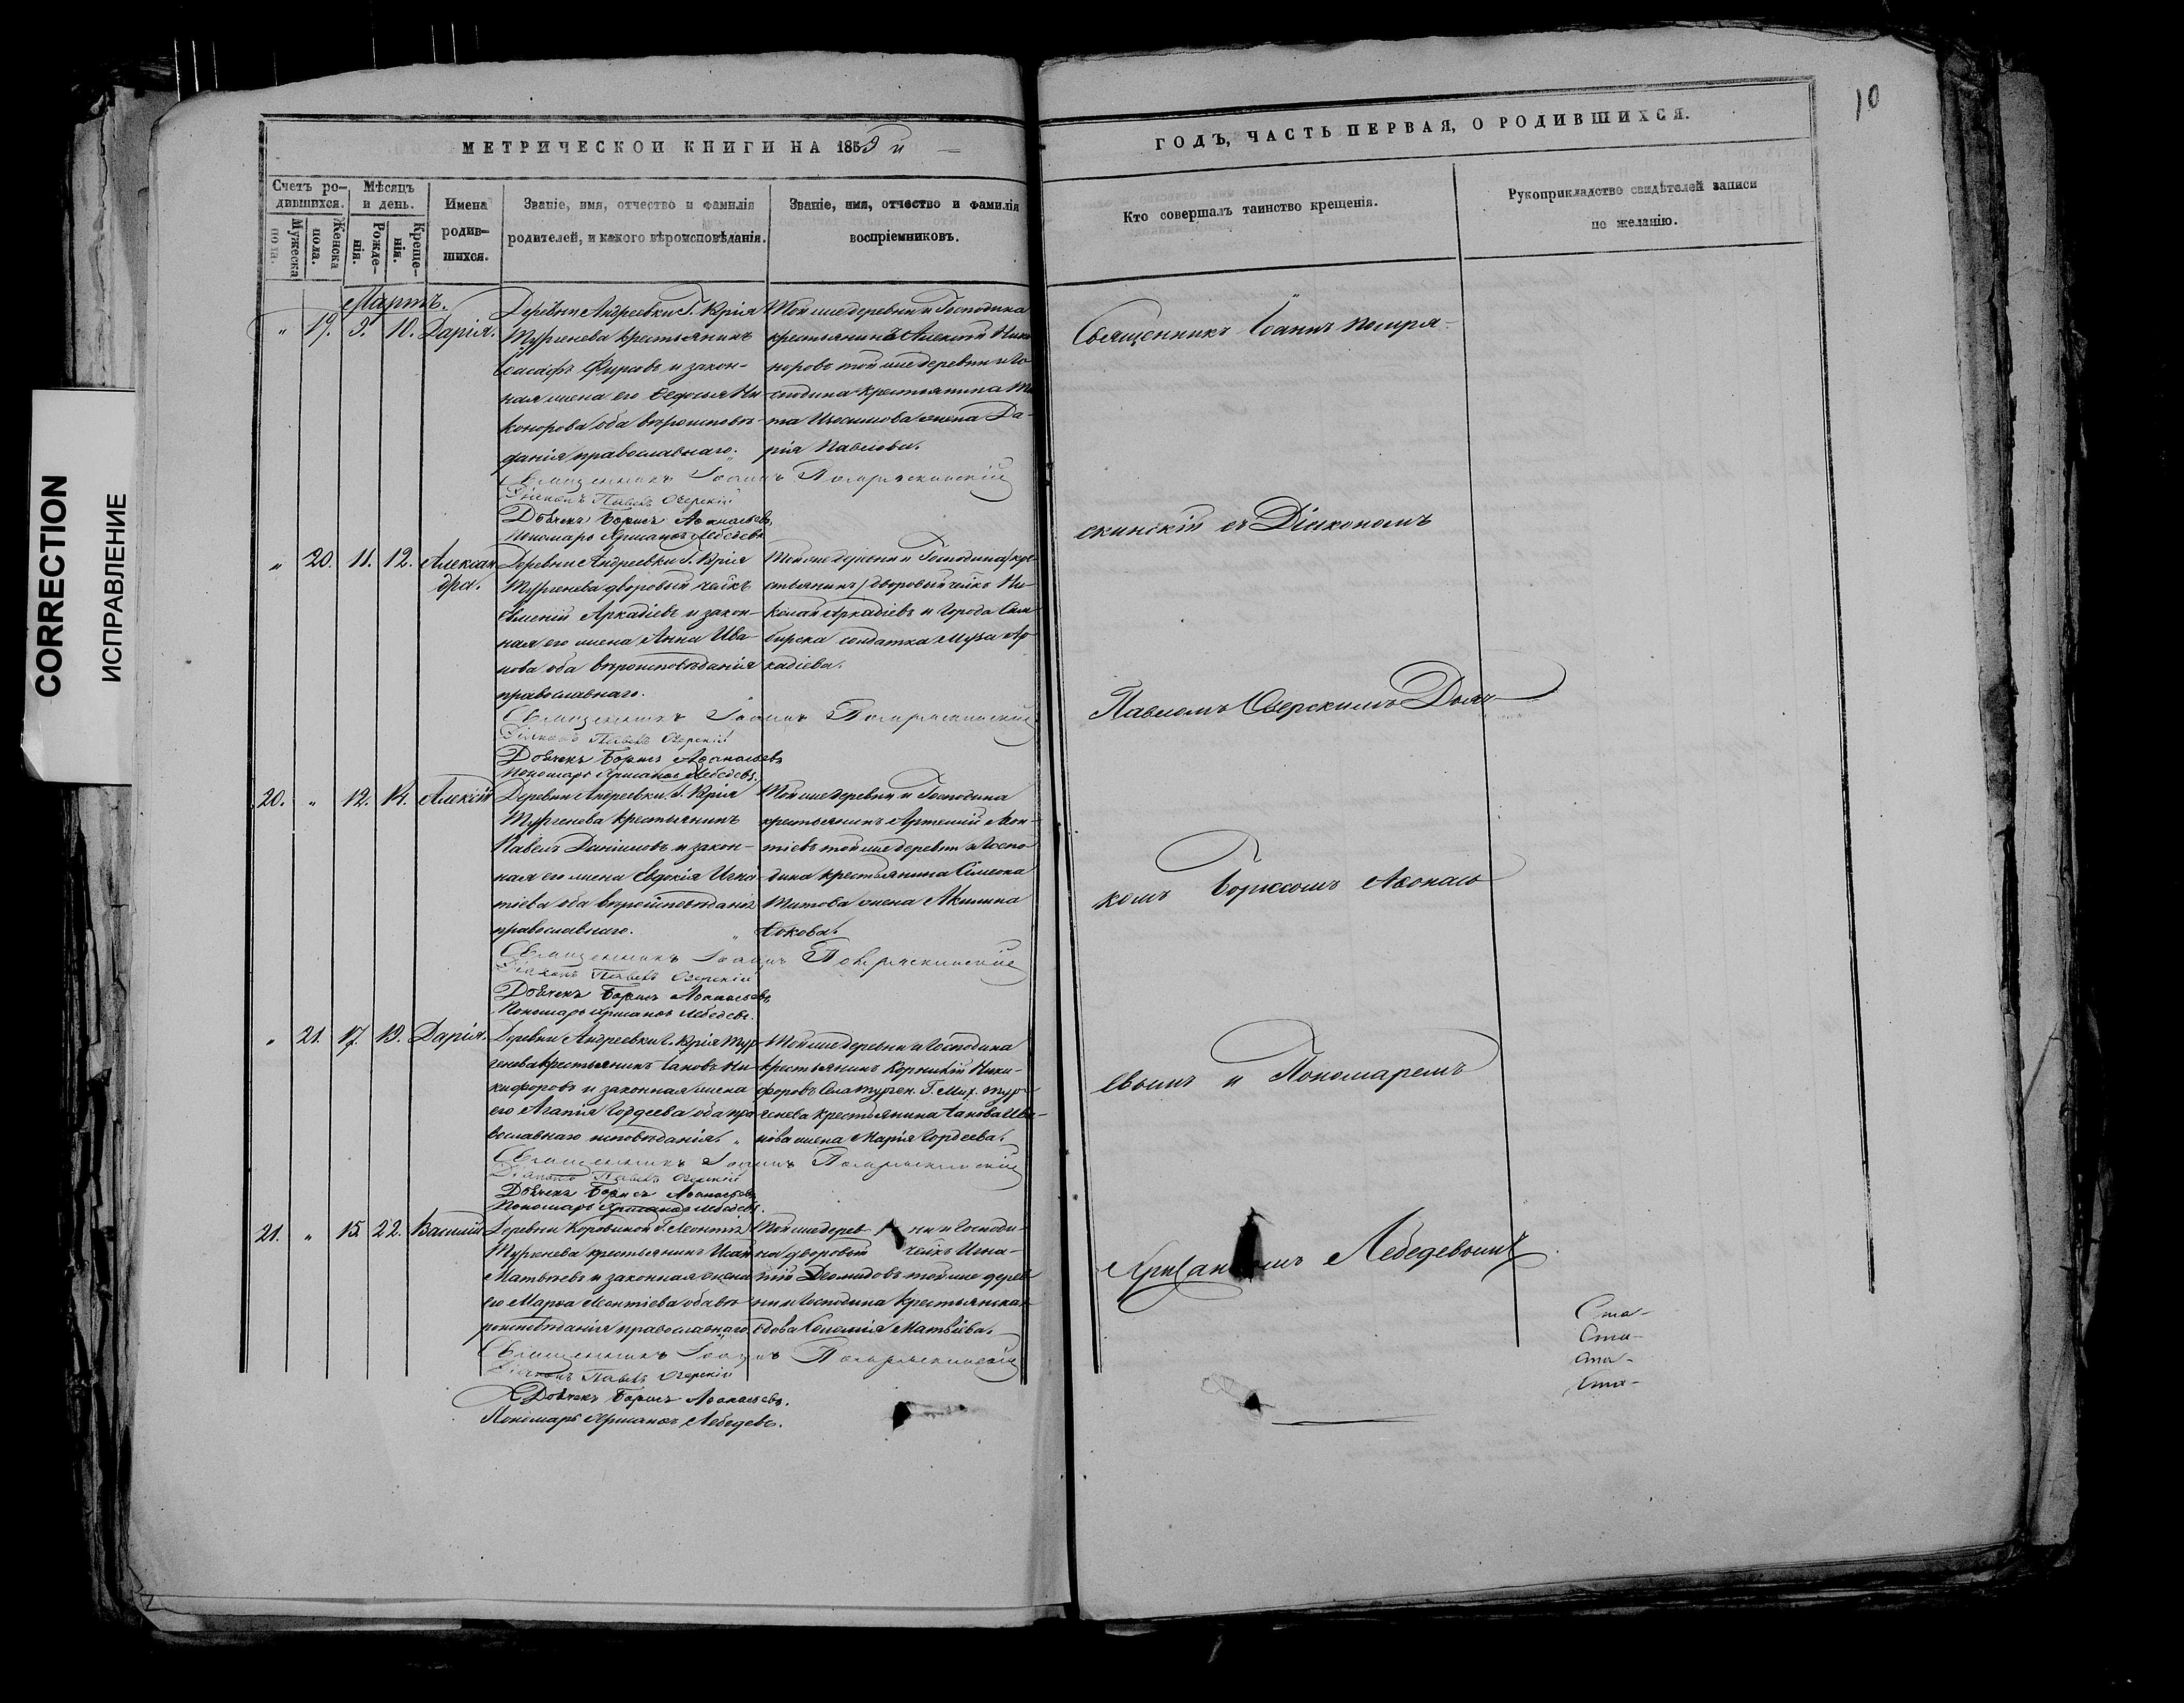 10
МЕТРИЧЕСКОЙ КНИГИ НА 1859 й
ГОДЪ, ЧАСТЬ ПЕРВАЯ, О РОДИВШИХСЯ.
Счетъ ро-
дившихся.
Мужеска
пола.
Женска
пола.
Мѣсяцъ
и день.
Рожде-
нія.
Креще-
нія.
Имена
родив-
шихся.
Званіе, имя, отчество и фамилія
родителей, и какого вѣроисповѣданія.
Званіе, имя, отчество и фамилія
воспріемниковъ.
Кто совершалъ таинство крещенія.
Рукоприкладство свидѣтелей записи
по желанію.
Мартъ.
" 19. 9. 10. Дарія.
Деревни Андреевки Г. Юрія
Тургенева крестьянинъ
Іоасафъ Фирсовъ и закон-
ная жена его Ѳедосья Ни-
конорова оба вѣроисповѣ-
данія православнаго.
Той же деревни и Господина
крестьянинъ Алексѣй Ника-
норовъ той же деревни и Го-
сподина крестьянина
Изосимова жена Да-
рія Павлова.
Священникъ Іоаннъ Помряскинскій
Діаконъ Павелъ Озерскій
Дьячекъ Борисъ Аѳанасьевъ
Пономарь Хрисанѳъ Лебедевъ
" 20. 11. 12. Алексан-
дра.
Деревни Андреевки Г. Юрія
Тургенева дворовый челкъ
Евменій Аркадіевъ и закон-
ная его жена Анна Ива-
нова оба вѣроисповѣданія
православнаго.
Той же деревни и Господина (кре-
стьянинъ) дворовый челкъ Ни-
колай Аркадіевъ и Города Сим-
бирска солдатка Муза Ар-
кадіева.
Священникъ Іоаннъ Помряскинскій
Діаконъ Павелъ Озерскій
Дьячекъ Борисъ Аѳанасьевъ
Пономарь Хрисанѳъ Лебедевъ.
20. " 12. 14. Алексѣй
Деревни Андреевки Г. Юрія
Тургенева крестьянинъ
Павелъ Даніиловъ и закон-
ная его жена Евдокія Игна-
тіева оба вѣроисповѣданія
православнаго.
Той же деревни и Господина
крестьянинъ Артемій Леон-
тіевъ той же деревни и Госпо-
дина крестьянина Симеона
Титова жена Акилина
Священникъ Іоаннъ Помряскинскій
Діаконъ Павелъ Озерскій
Дьячекъ Борисъ Аѳанасьевъ
Пономарь Хрисанѳъ Лебедевъ.
" 21. 17. 19. Дарія.
Деревни Андреевки Г. Юрія Тур-
генева крестьянинъ Іаковъ Ни-
кифоровъ и законная жена
его Агапія Гордеева оба пра-
вославнаго исповѣданія. "
Той же деревни и Господина
крестьянинъ Корнилій Ники-
форовъ Села Турген. Г. Мих. Тур-
генева крестьянина Іакова Ива-
нова жена Марія Гордеева.
Священникъ Іоаннъ Помряскинскій
Діаконъ Павелъ Озерскій
Дьячекъ Борисъ Аѳанасьевъ
Пономарь Хрисанѳъ Лебедевъ.
21. " 15. 22. Василій
Деревни Коровиной Г. Леонтія
Тургенева крестьянинъ Исай
Матвѣевъ и законная жена
его Марѳа Леонтіева оба вѣ-
роисповѣданія православнаго.
Той же дерев ни и Господи-
на дворовой челкъ Игна-
тій Деомидовъ той же дерев-
ни и Господина крестьянская
вдова Соломія Матвѣева.
Священникъ Іоаннъ Помряскинскій
Діаконъ Павелъ Озерскій
Дьячекъ Борисъ Аѳанасьевъ.
Пономарь Хрисанѳъ Лебедевъ.
Священникъ Іоаннъ Помря-
скинскій съ Діакономъ
Павломъ Озерскимъ Дьяч-
комъ Борисомъ Аѳанась
евымъ и Пономаремъ
Хрисанѳомъ Лебедевымъ.
Ста-
Ста-
Ста-
Ста-
CORRECTION
ИСПРАВЛЕНИЕ